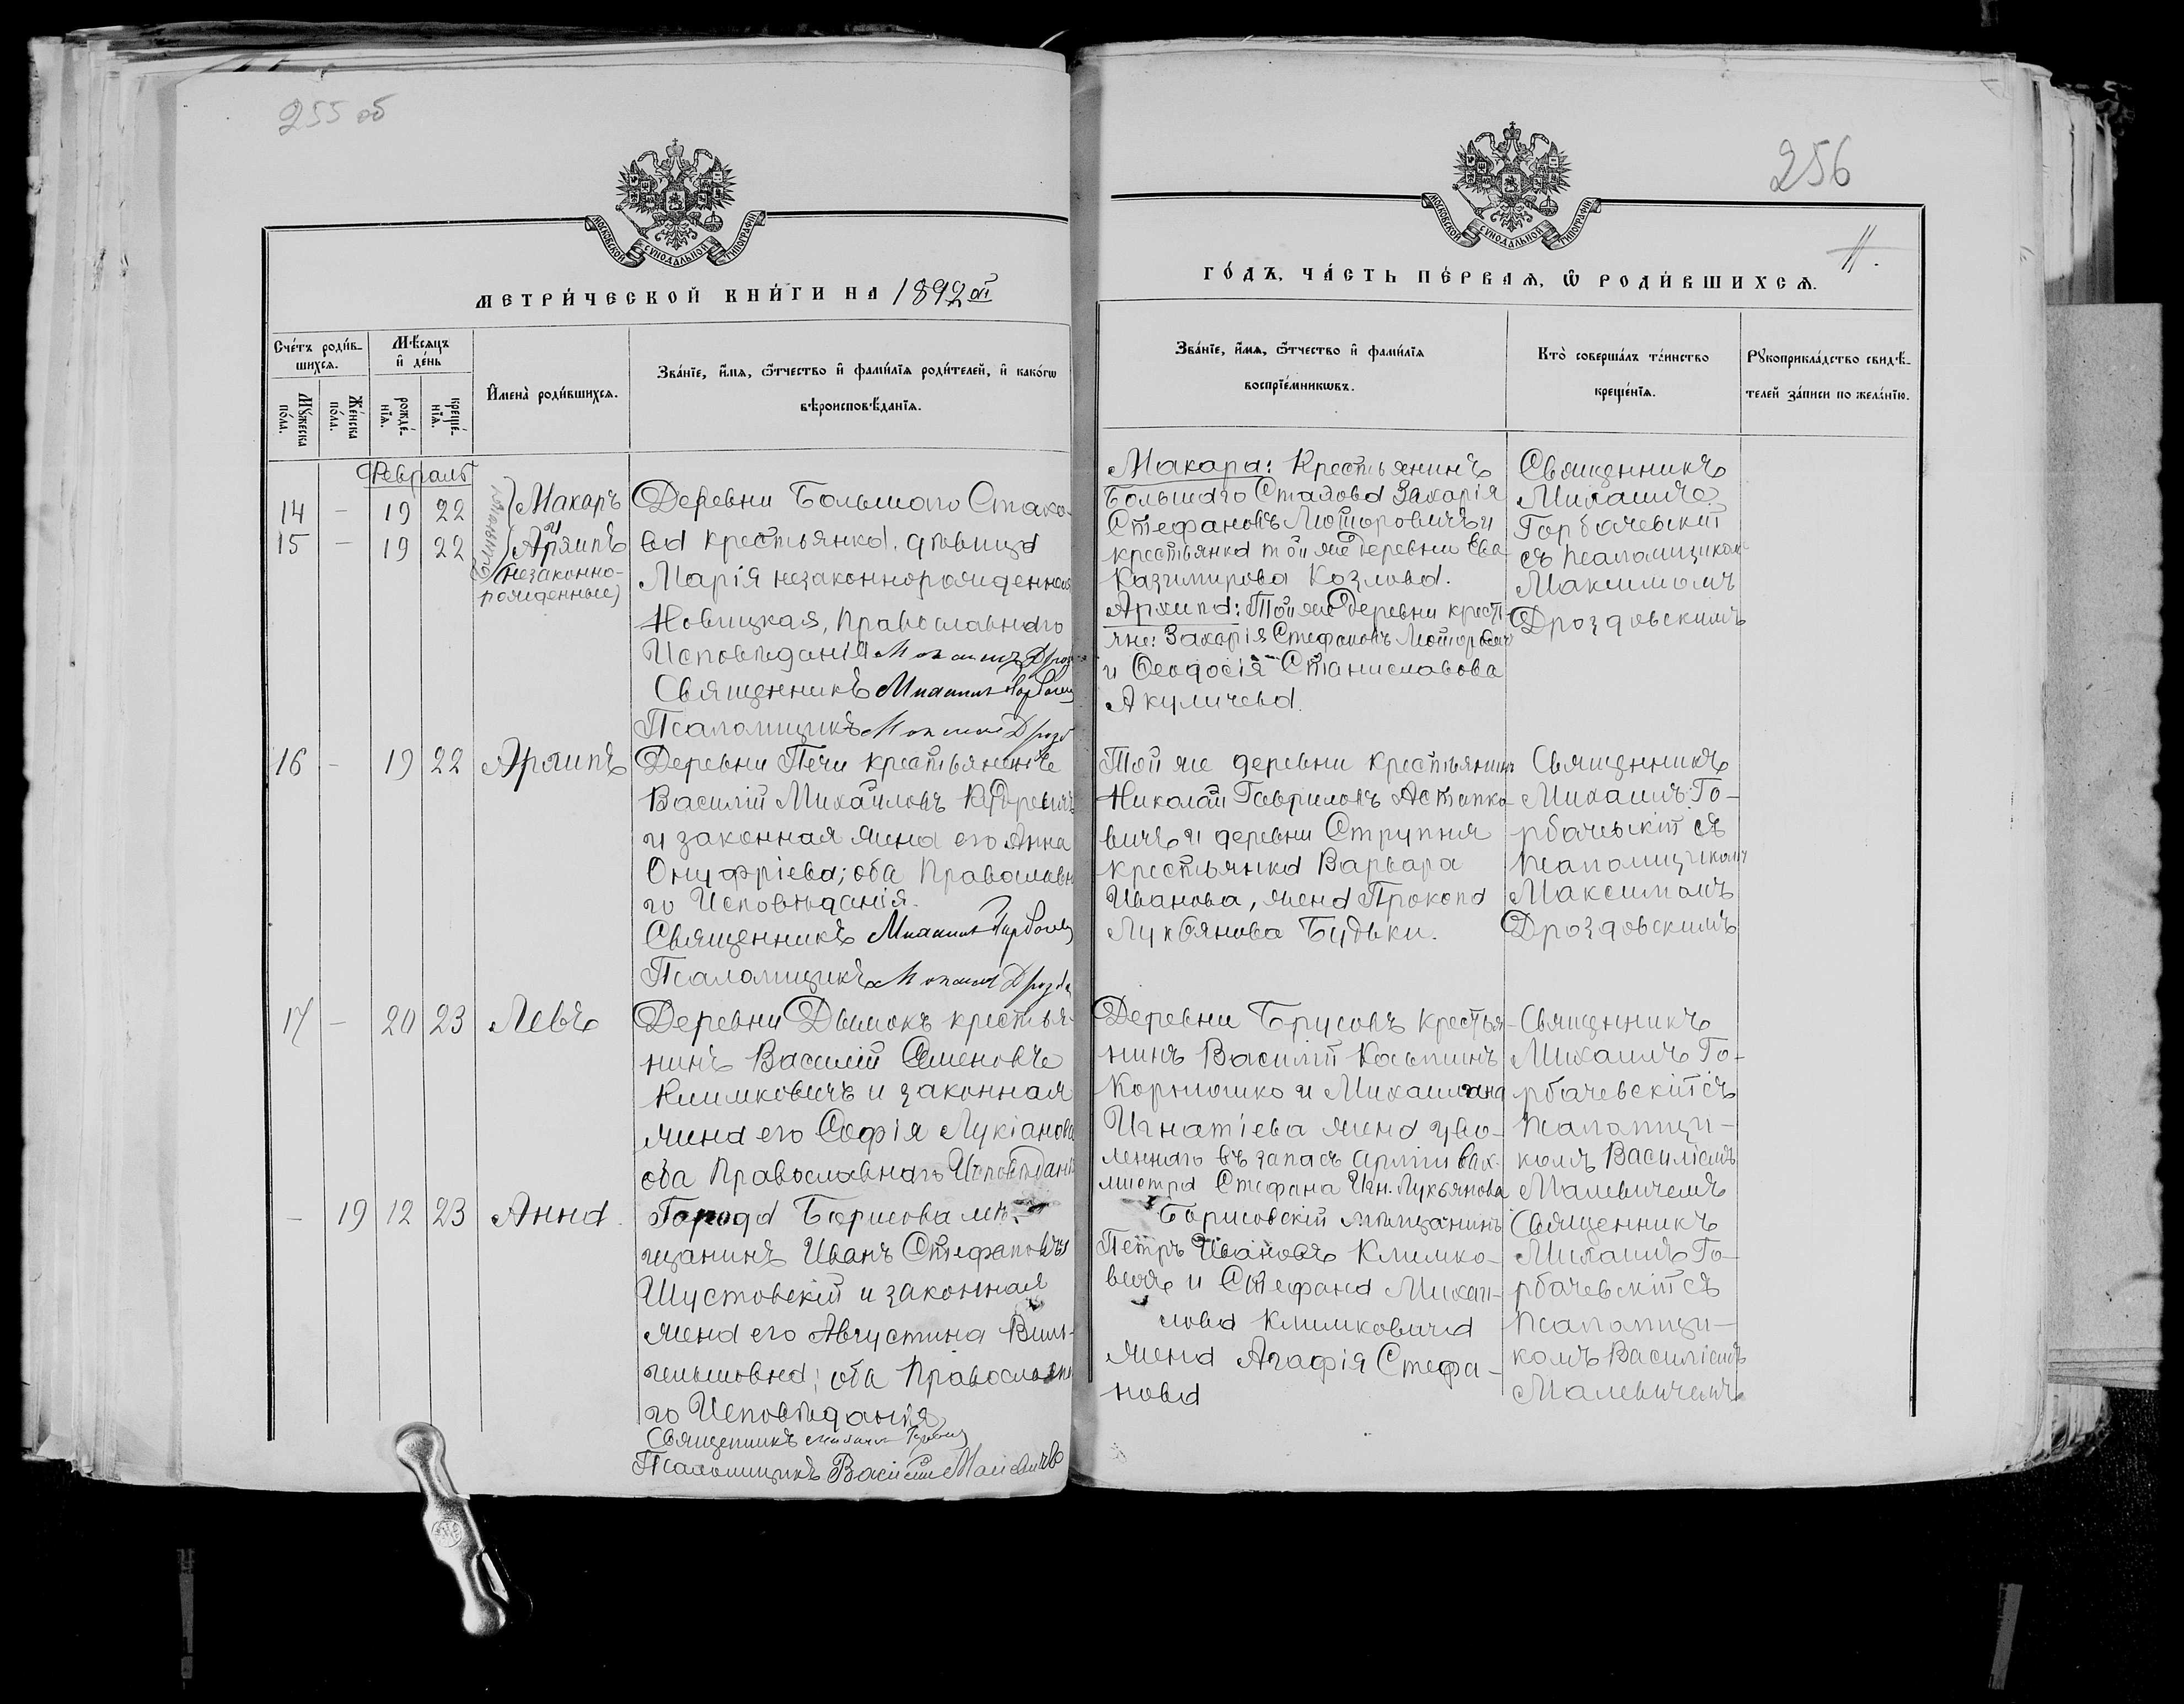 255 об
МОСКОВСКОЙ СУНОДАЛЬНОЙ ТИПОГРАФІИ
МЕТРИ́ЧЕСКОЙ КНИ́ГИ НА 1892 ой
Сче́тъ роди́в-
шихсѧ.
Мѣ́сѧцъ
и҆ де́нь
Мꙋ́жеска
по́ла.
Же́нска
по́ла.
рожде́-
нїѧ.
креще́-
нїѧ.
И҆мена̀ роди́вшихсѧ.
Зва́нїе, и҆́мѧ, ѻ҆́тчество и҆ фами́лїѧ роди́телей, и҆ како́гѡ
вѣроисповѣ́данїѧ.
Февраль
14 - 19 22 Макаръ
и
15 - 19 22 Архипъ
(незаконно-
рожденные)
близнецы
Деревни Большаго Стахо-
ва крестьянка, дѣвица
Марія незаконнорожденная
Новицкая, Православнаго
Исповѣданія
Священникъ Михаилъ Горбачев
Псаломщикъ Максимъ Дрозд
16 - 19 22 Архипъ
Деревни Печи крестьянинъ
Василій Михайловъ Кудревичъ
и законная жена его Анна
Онуфріева; оба Православна
го Исповѣданія.
Священникъ Михаилъ Горбачев
Псаломщикъ Максимъ Дроздо
17 - 20 23 Левъ
Деревни Дымокъ крестья-
нинъ Василій Семеновъ
Климковичъ и законная
жена его Софія Лукіанова
оба Православнаго Исповѣданія
- 19 12 23 Анна.
Города Борисова мѣ-
щанинъ Иванъ Стефановъ
Шустовскій и законная
жена его Августина Виль-
гельмовна; оба Православна
го Исповѣданія
Священникъ Михаилъ Горбачев
Псаломщикъ Василій Малевичъ
256
11.
МОСКОВСКОЙ СУНОДАЛЬНОЙ ТИПОГРАФІИ
ГО́ДЪ, ЧА́СТЬ ПЕ́РВАѦ, Ѽ РОДИ́ВШИХСѦ.
Зва́нїе, и҆́мѧ, ѻ҆́тчество и҆ фами́лїѧ
воспрїе́мникѡвъ.
Кто̀ соверша́лъ та́инство
креще́нїѧ.
Рꙋкоприкла́дство свидѣ́-
телей за́писи по жела́нїю.
Макара: Крестьянинъ
Большаго Стахова Захарія
Стефановъ Моторовичъ и
крестьянка той же деревни Ева
Казимирова Козлова.
Архипа: Той же деревни кресть-
яне: Захарія Стефановъ Моторович
и Ѳеодосія Станиславова
Акуличева.
Священникъ
Михаилъ
Горбачевскій
съ псаломщиком
Максимомъ
Дроздовскимъ
Той же деревни крестьянинъ
Николай Гавриловъ Астапко-
вичъ и деревни Струпня
крестьянка Варвара
Иванова, жена Прокопа
Лукьянова Будьки.
Священникъ
Михаилъ Го-
рбачевскій съ
псаломщикомъ
Максимомъ
Дроздовскимъ
Деревни Брусовъ крестья-
нинъ Василій Косьминъ
Корнюшко и Михаилина
Игнатіева жена уво-
леннаго въ запасъ арміи вах-
мистра Стефана Игн. Лукьянова
Священникъ
Михаилъ Го-
рбачевскій съ
псаломщи-
комъ Василіемъ
Малевичемъ
Борисовскій мѣщанинъ
Петръ Ивановъ Климко-
вичъ и Стефана Михаи-
лова Климковича
жена Агафія Стефа-
нова
Священникъ
Михаилъ Го-
рбачевскій съ
псаломщи-
комъ Василіемъ
Малевичемъ